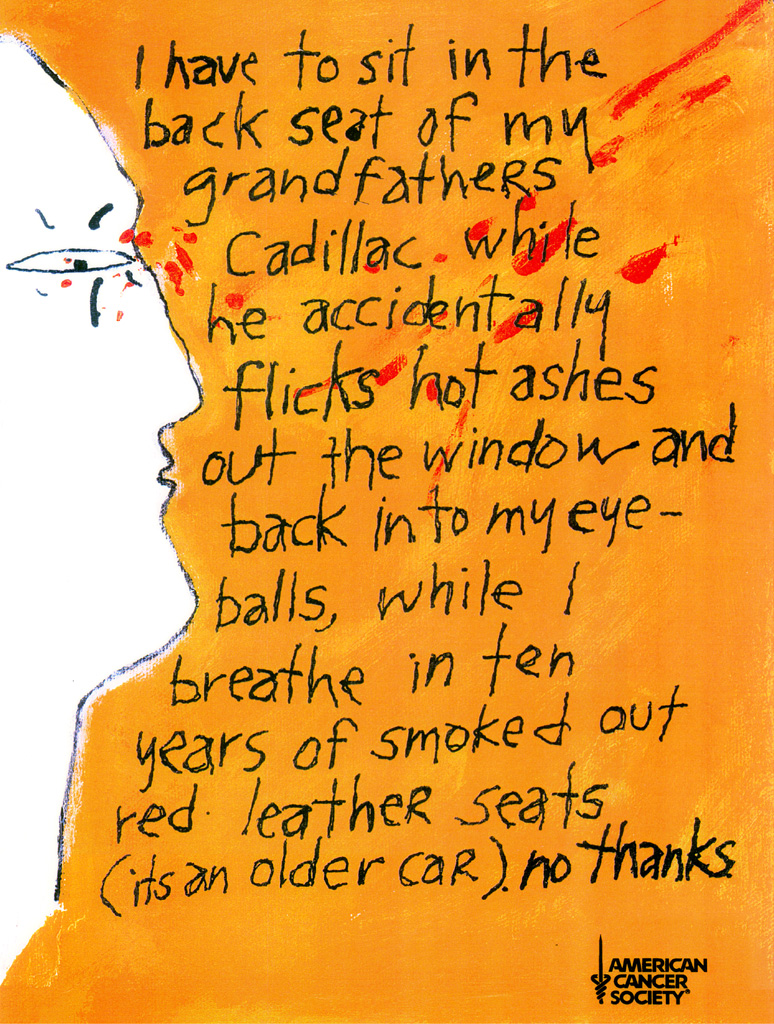 I have to sit in the
back seat of my
grandfathers
Cadillac while
he accidentally
flicks hot ashes
out the window and
back into my eye-
balls, while I
breathe in ten
years of smoked out
red leather seats
(its an older car). no thanks
AMERICAN
CANCER
SOCIETY®